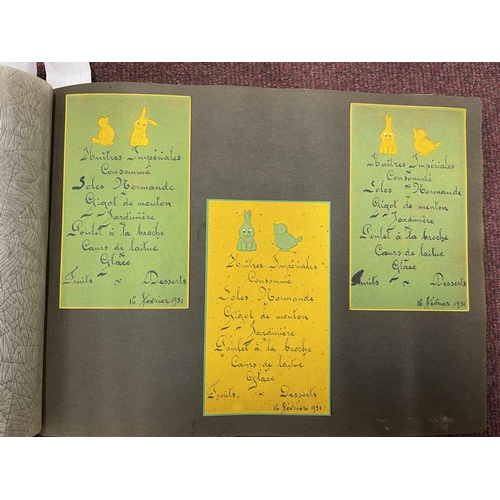 Huîtres Impériales
Consommé
Soles Normande
Gigot de mouton
~ ~ Jardinière
Poulet à la broche
Cœurs de laitue
Glace
Fruits ~ Desserts
16 février 1931
Huîtres Impériales
Consommé
Soles Normande
Gigot de mouton
~ ~ Jardinière
Poulet à la broche
Cœurs de laitue
Glace
Fruits ~ Desserts
16 février 1931
Huîtres Impériales
Consommé
Soles Normande
Gigot de mouton
~ ~ Jardinière
Poulet à la broche
Cœurs de laitue
Glace
Fruits ~ Desserts
16 février 1931